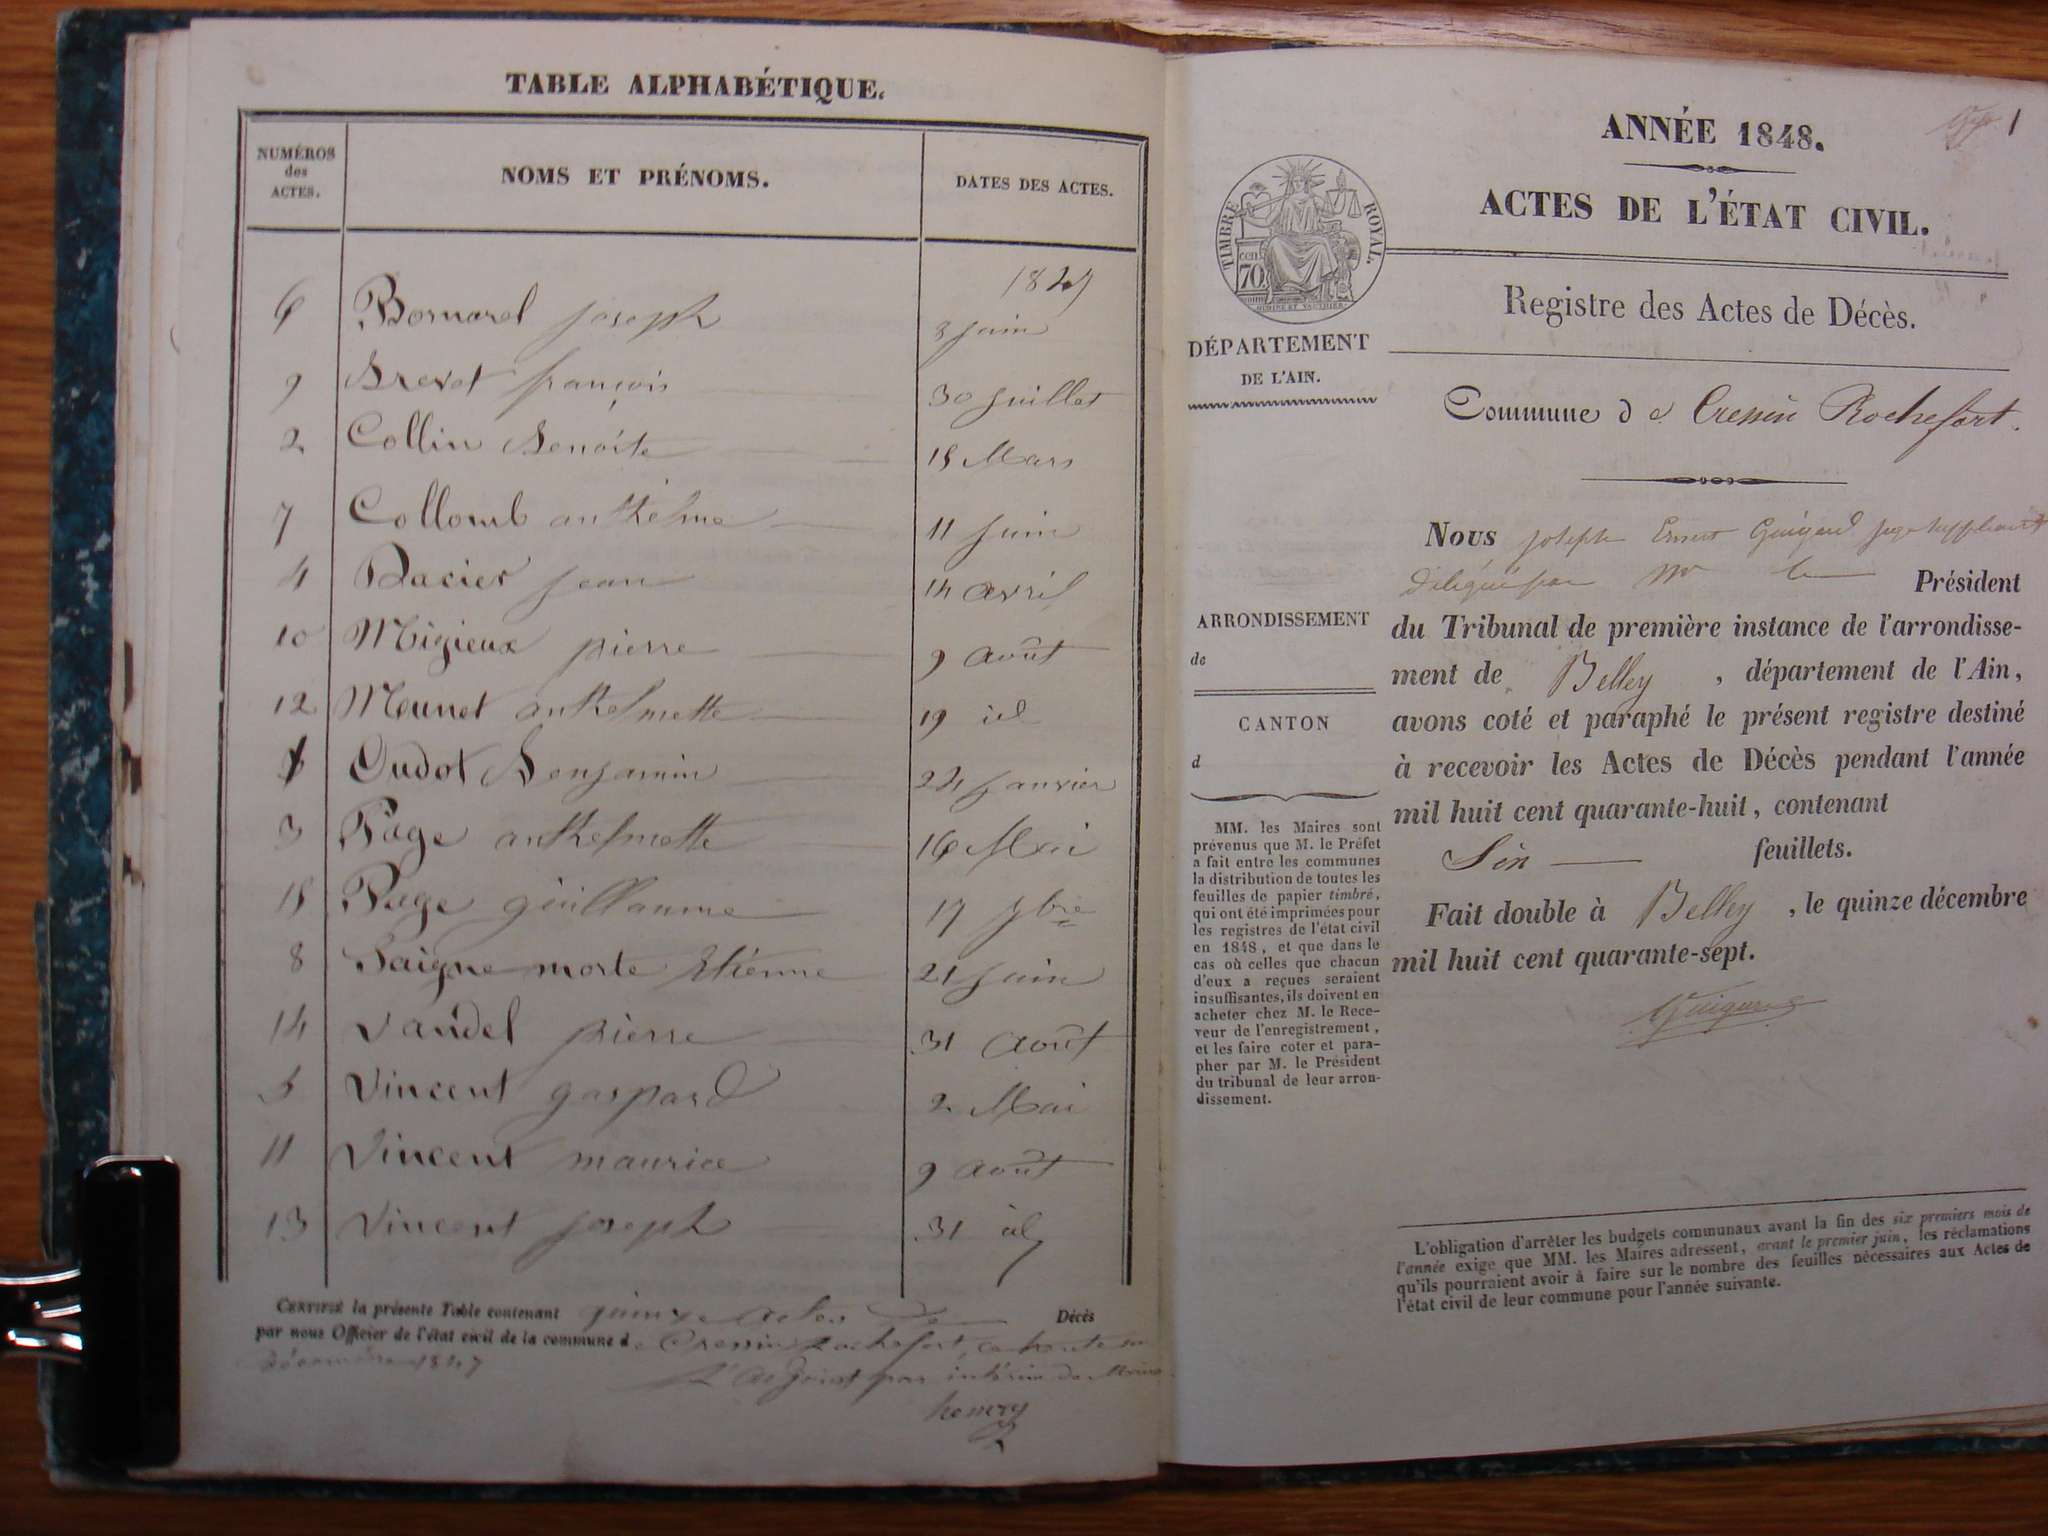 TABLE ALPHABÉTIQUE.
NUMÉROS
des
ACTES.
NOMS ET PRÉNOMS.
DATES DES ACTES.
1847
6 Bornarel joseph 8 juin
9 Brevet françois 30 juillet
2 Collin Benoite 15 Mars
7 Collomb anthelme 11 juin
4 Dacier jean 14 avril
10 Migieux pierre 9 août
12 Meunet anthelmette 19 id
1 Oudot Benjamin 24 janvier
3 Page anthelmette 16 Mai
15 Page guillaume 17 9bre
8 Saigne morte Etienne 21 juin
14 Vandel pierre 31 août
5 Vincent gaspard 2 Mai
11 Vincent maurice 9 août
13 Vincent joseph 31 id
CERTIFIÉ la présente Table contenant quinze actes de Décès
par nous Officier de l'état civil de la commune de Cressin Rochefort, ce trente un
Décembre 1847
L'adjoint par intérim du Maire
hemery
1
ANNÉE 1848.
ACTES DE L'ÉTAT CIVIL.
TIMBRE ROYAL.
CEN
70
Registre des Actes de Décès.
DÉPARTEMENT
DE L'AIN.
Commune de Cressin Rochefort.
Nous joseph Ernest Guigard juge suppléant
Délégué par Mr le Président
du Tribunal de première instance de l'arrondisse-
ment de Belley, département de l'Ain,
avons coté et paraphé le présent registre destiné
à recevoir les Actes de Décès pendant l'année
mil huit cent quarante-huit, contenant
Six feuillets.
Fait double à Belley, le quinze décembre
mil huit cent quarante-sept.
Guigard
ARRONDISSEMENT
de
CANTON
d
MM. les Maires sont
prévenus que M. le Préfet
a fait entre les communes
la distribution de toutes les
feuilles de papier timbré,
qui ont été imprimées pour
les registres de l'état civil
en 1848, et que dans le
cas où celles que chacun
d'eux a reçues seraient
insuffisantes, ils doivent en
acheter chez M. le Rece-
veur de l'enregistrement,
et les faire coter et para-
pher par M. le Président
du tribunal de leur arron-
dissement.
L'obligation d'arrêter les budgets communaux avant la fin des six premiers mois de
l'année exige que MM. les Maires adressent, avant le premier juin, les réclamations
qu'ils pourraient avoir à faire sur le nombre des feuilles nécessaires aux Actes de
l'état civil de leur commune pour l'année suivante.